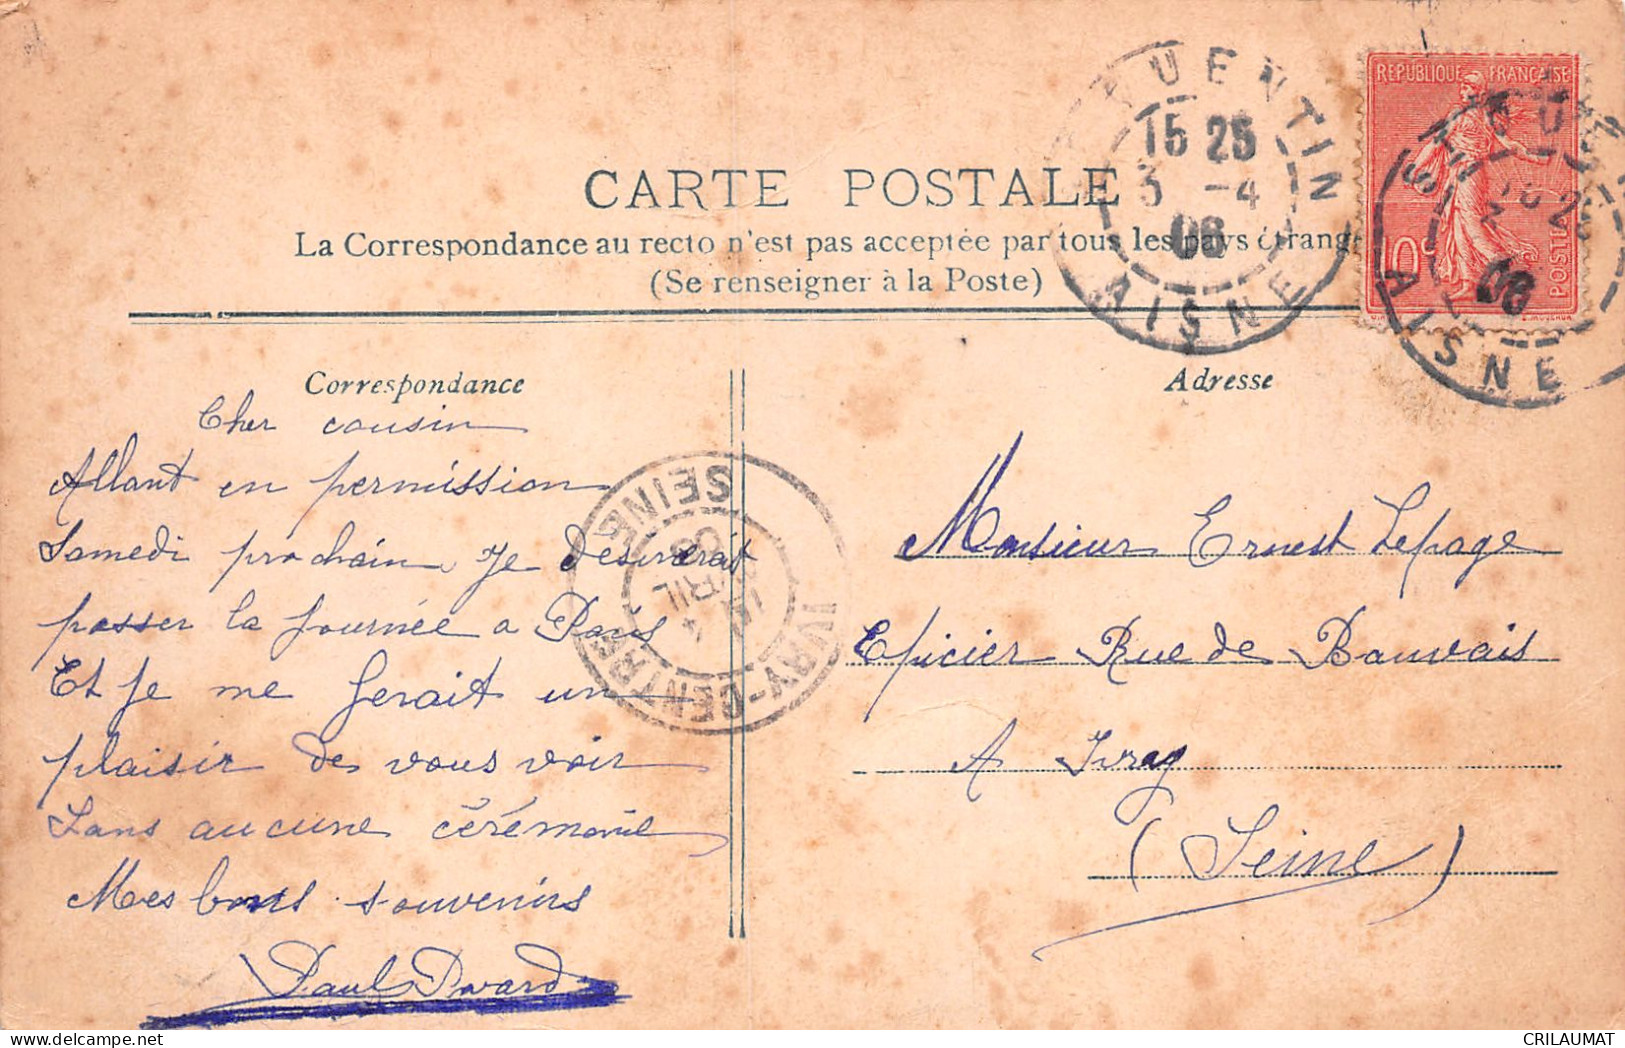 CARTE POSTALE
La Correspondance au recto n'est pas acceptée par tous les pays étrang
(Se renseigner à la Poste)
QUENTIN
15 25
3 -4
06
AISNE
REPUBLIQUE FRANÇAISE
10c
POSTES
ST QU
06
AISNE
Correspondance
Cher cousin
Allant en permission
Samedi prochain je desirerait
passer la journée a Paris
Et je me ferait un
plaisir de vous voir
Sans aucune cérémonie
Mes bons souvenirs
Paul
IVRY-CENTRE
SEINE
AVRIL
06
Adresse
Monsieur Ernest Lepage
Epicier Rue de Bauvais
A Ivry
(Seine)
CRILAUMAT